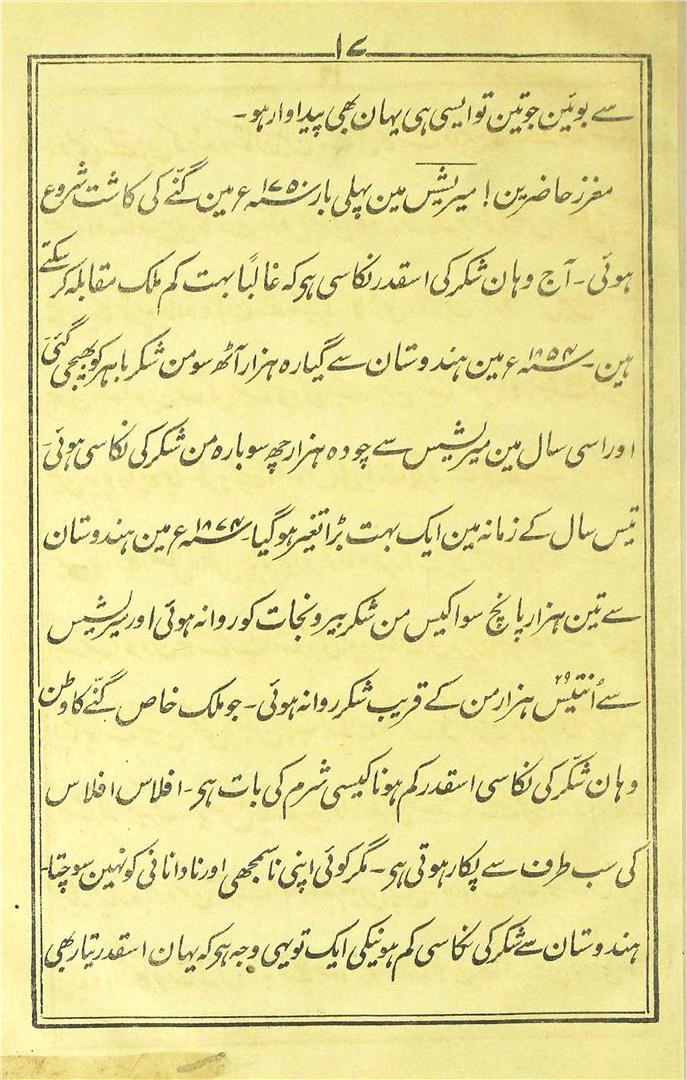 ۱۷
سے بوئین جوتین تو ایسی ہی یہان بھی پیداوار ہو۔
مفرز حاضرین! میریشس مین پہلی بار سنہ ۱۷۵۰ء مین گنّے کی کاشت شروع
ہوئی۔ آج وہان شکر کی اسقدر نکاسی ہی کہ غالباً بہت کم ملک مقابلہ کر سکتے
ہین۔ سنہ ۱۸۵۴ء مین ہندوستان سے گیارہ ہزار آٹھ سو من شکر باہر کو بھیجی گئی
اور اسی سال مین میریشس سے چودہ ہزار چھ سو بارہ من شکر کی نکاسی ہوئی
تیس سال کے زمانہ مین ایک بہت بڑا تغیر ہو گیا۔ سنہ ۱۸۷۴ء مین ہندوستان
سے تین ہزار پانچ سو اکیس من شکر بیرونجات کو روانہ ہوئی اور میریشس
سے اُنتیس ۲۹ ہزار من کے قریب شکر روانہ ہوئی۔ جو ملک خاص گنّے کا وطن
وہان شکّر کی نکاسی اسقدر کم ہونا کیسی شرم کی بات ہی۔ افلاس افلاس
کی سب طرف سے پکار ہوتی ہی۔ مگر کوئی اپنی ناسمجھی اور نادانائی کو نہین سوچتا۔
ہندوستان سے شکر کی نکاسی کم ہونیکی ایک تو یہی وجہ ہی کہ یہان اسقدر تیار بھی